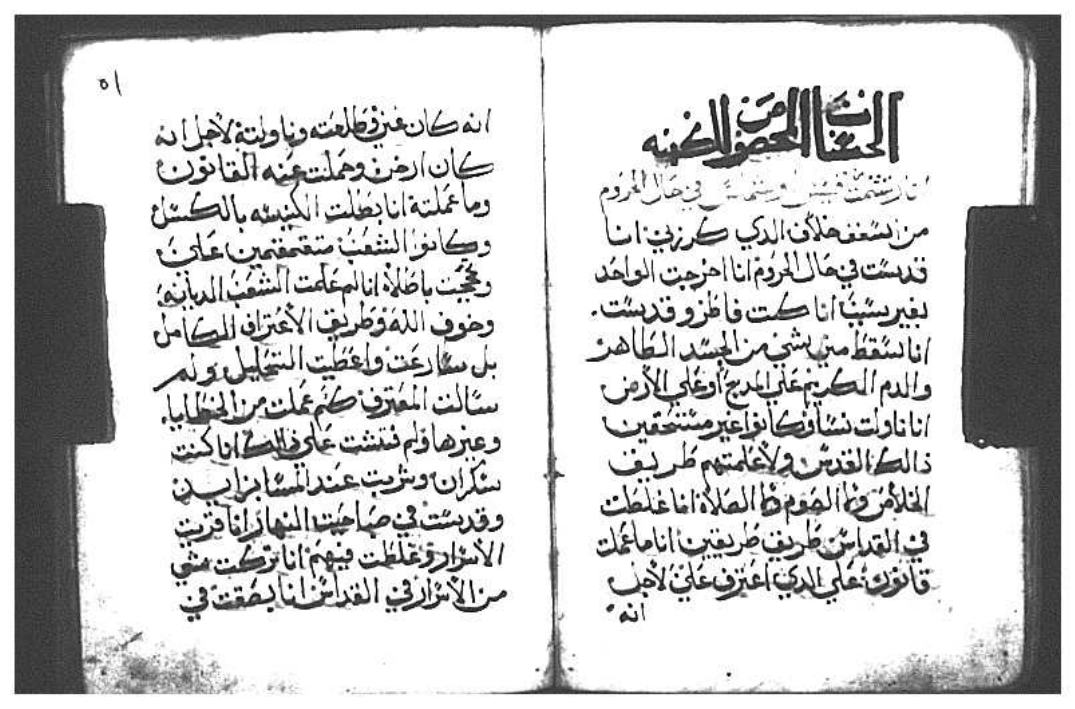 انا ارتشمت قسيس وشماس في حال الحروم
من اسقف خلاف الدي كرزني انا
قدست في حال الحروم انا اخرجت الواحد
بغير سبب انا كنت فاطر وقدست.
انا سقط مني شي من الجسد الطاهر
والدم الكريم علي المدبح أو علي الأرض
انا ناولت نسا وكانوا غير مستحقين
دالك القدس ولا علمتهم طريق
الخلاص ولا الصوم ولا الصلاة انا غلطت
في القداس طريق طريقين انا ما عملت
قانون علي الدي اعترف علي لاجل
انه
٥١
انه كان غني وطلعته وناولته لأجل انه
كان ارخن وحملت عنه القانون
وما عملته انا بطلت الكنيسه بالكسل
وكانوا الشعب متقمقمين علي
وحججت باطلاً انا لم علمت الشعب الديانه
وخوف الله وطريق الأعتراف الكامل
بل سارعت واعطيت التحليل ولم
سالت المعترف كم عملت من الخطايا.
وغيرها ولم فتشت علي دالك انا كنت
سكران وشربت عند المسا بزايد
وقدست في صباحيت النهار انا قريت
الأسرار وغلطت فيهم انا تركت شي
من الأسرار في القداس انا بصقت في